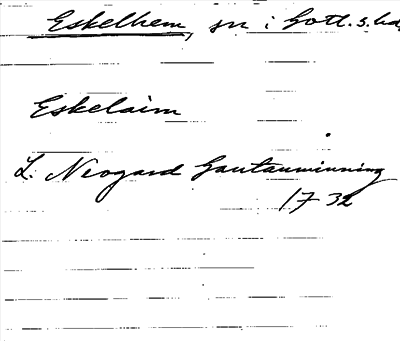 Eskelhem, sn i Gotl. s. hd
Eskelaim
L. Neogard Gautauminning
1732